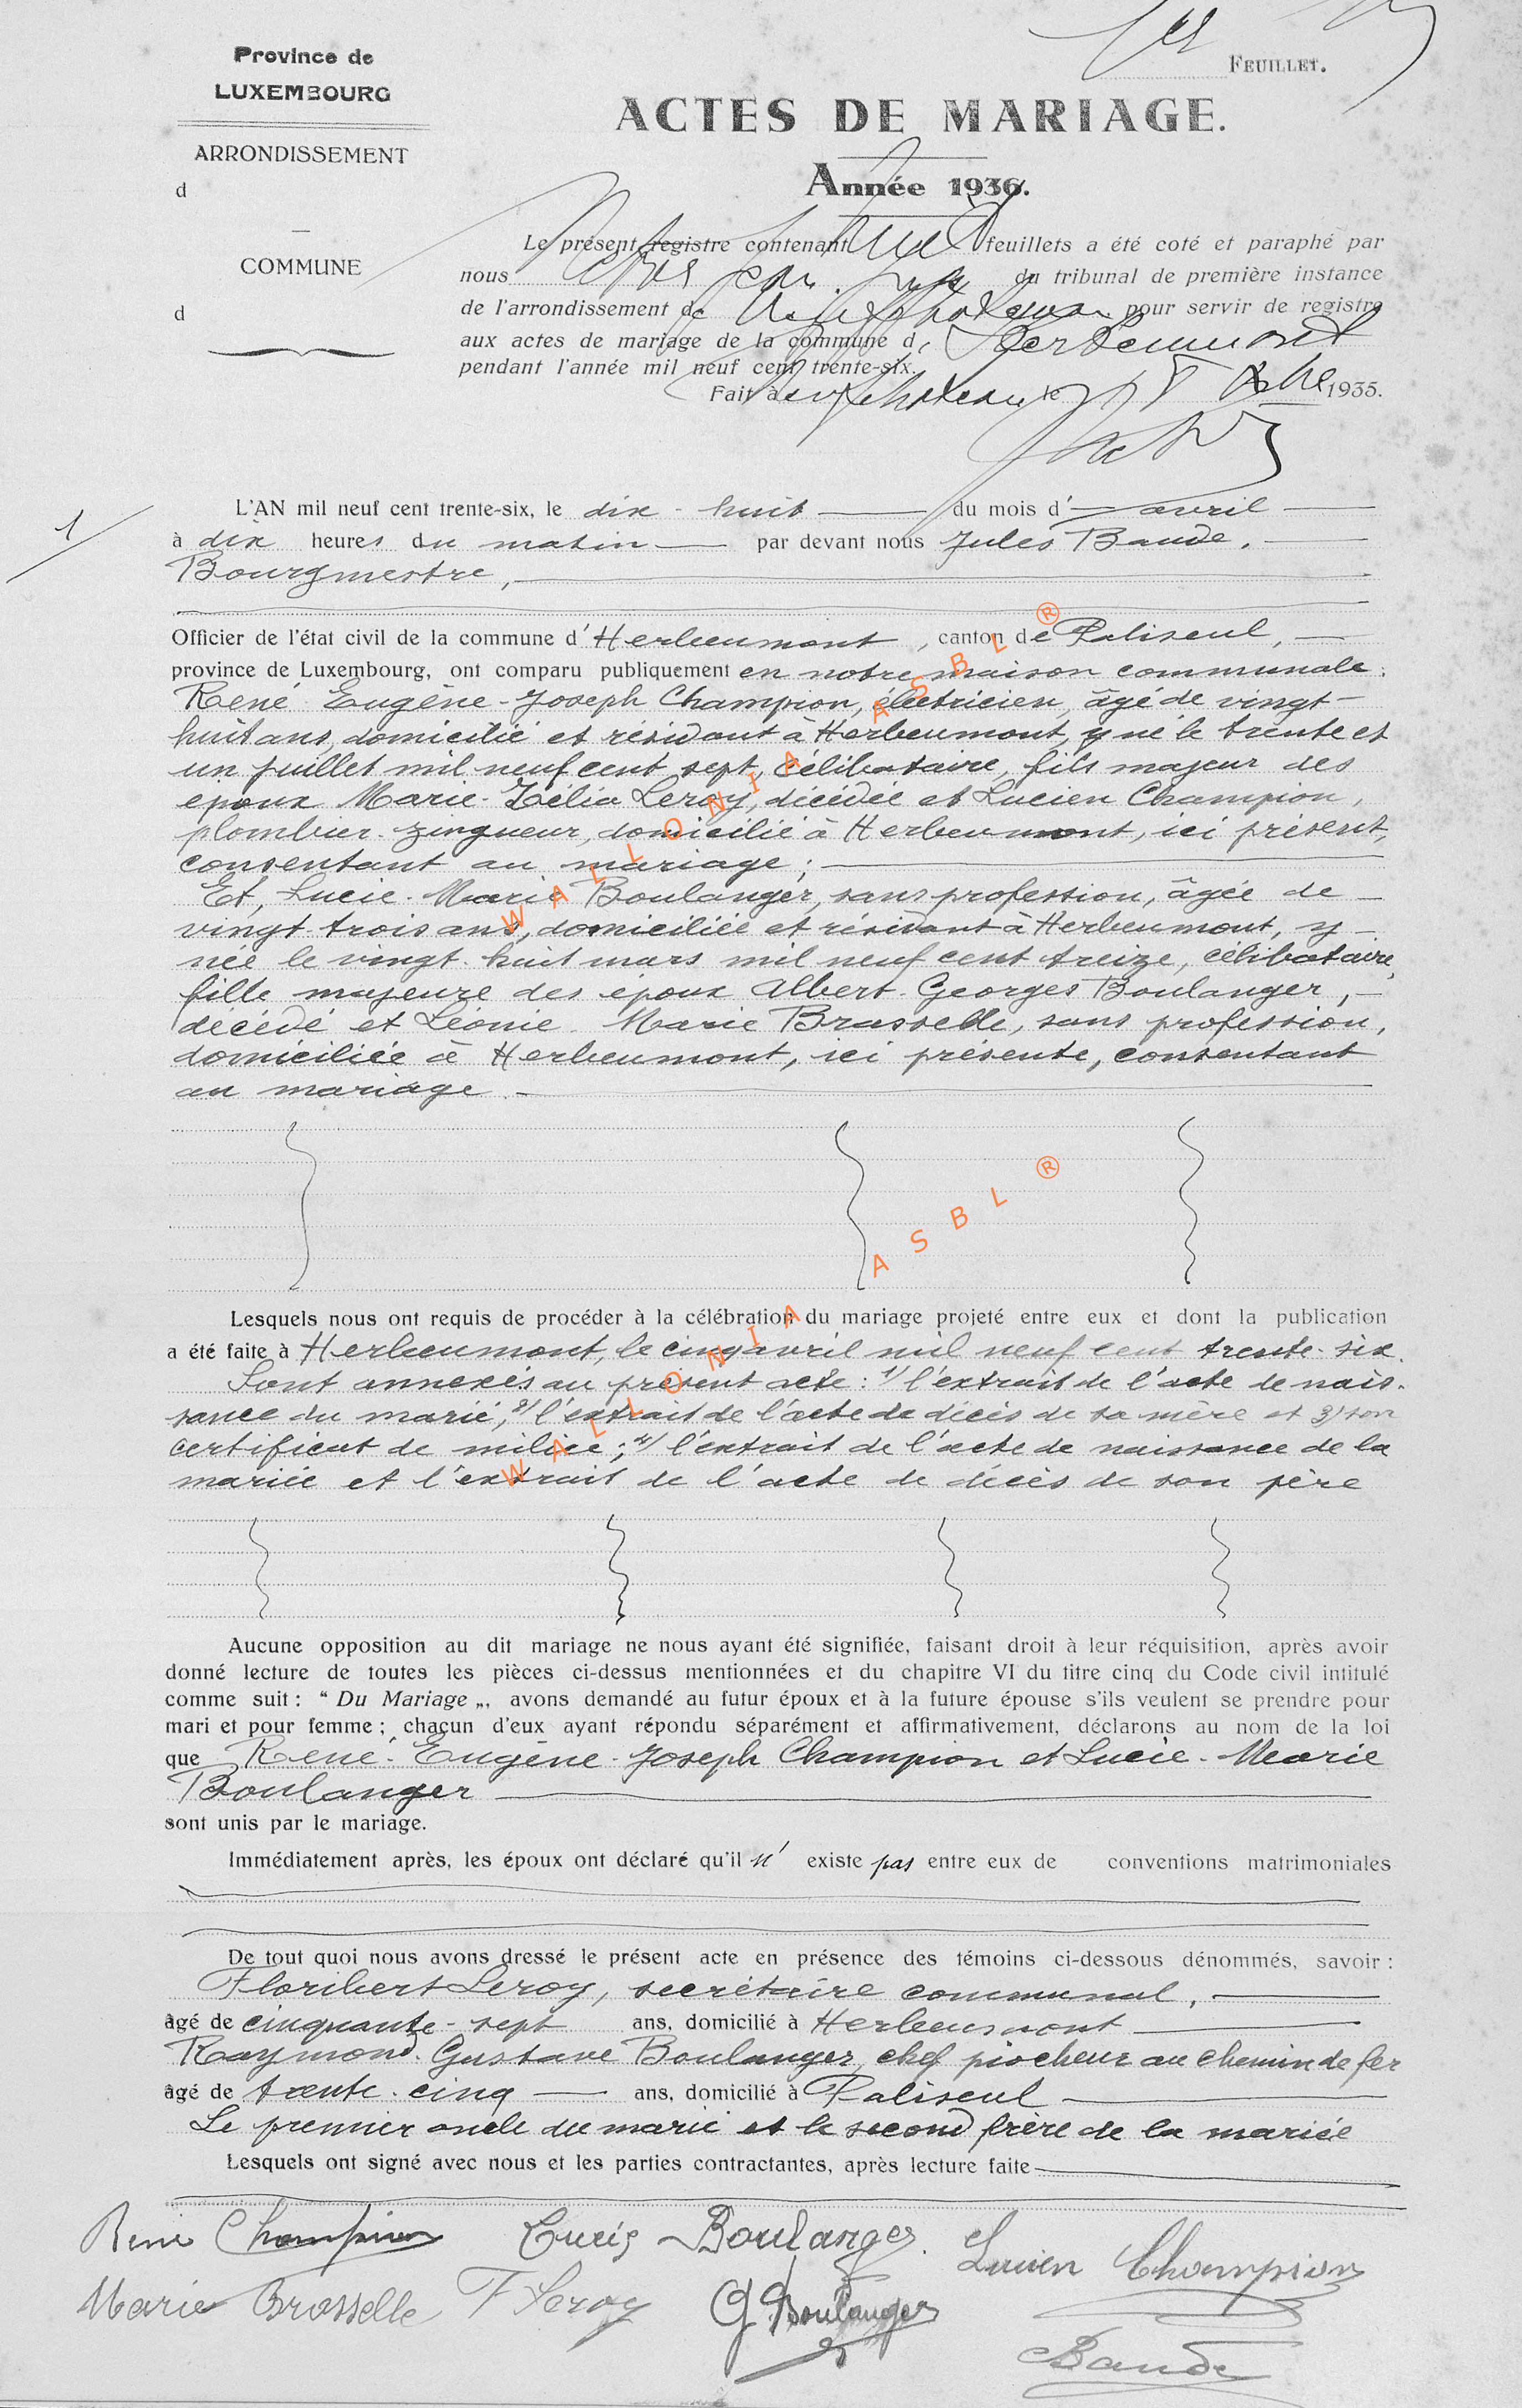 1er
FEUILLET.
Province de
LUXEMBOURG
ARRONDISSEMENT
d
COMMUNE
d
ACTES DE MARIAGE.
Année 1936.
Le présent registre contenant feuillets a été coté et paraphé par
nous du tribunal de première instance
de l'arrondissement de Neufchateau pour servir de registre
aux actes de mariage de la commune d' Herbeumont
pendant l'année mil neuf cent trente-six.
Fait à Neufchateau, le Xbre 1935.
1/
L'AN mil neuf cent trente-six, le dix-huit du mois d' avril
à dix heures du matin par devant nous Jules Baude,
Bourgmestre,
Officier de l'état civil de la commune d' Herbeumont, canton de Paliseul,
province de Luxembourg, ont comparu publiquement en notre maison communale:
René-Eugène-Joseph Champion, électricien, âgé de vingt-
huit ans, domicilié et résidant à Herbeumont, y né le trente et
un juillet mil neuf cent sept, célibataire, fils majeur des
époux Marie-Zélia Leroy, décédée et Lucien Champion,
plombier-zingueur, domicilié à Herbeumont, ici présent,
consentant au mariage;
Et, Lucie-Marie Boulanger, sans profession, âgée de
vingt-trois ans, domiciliée et résidant à Herbeumont, y
née le vingt-huit mars mil neuf cent treize, célibataire,
fille majeure des époux Albert-Georges Boulanger,
décédé et Léonie-Marie Brasselle, sans profession,
domiciliée à Herbeumont, ici présente, consentant
au mariage.
Lesquels nous ont requis de procéder à la célébration du mariage projeté entre eux et dont la publication
a été faite à Herbeumont, le cinq avril mil neuf cent trente-six.
Sont annexés au présent acte: 1/ l'extrait de l'acte de nais-
sance du marié, 2/ l'extrait de l'acte de décès de sa mère et 3/ son
certificat de milice; 4/ l'extrait de l'acte de naissance de la
mariée et l'extrait de l'acte de décès de son père
Aucune opposition au dit mariage ne nous ayant été signifiée, faisant droit à leur réquisition, après avoir
donné lecture de toutes les pièces ci-dessus mentionnées et du chapitre VI du titre cinq du Code civil intitulé
comme suit : “ Du Mariage „, avons demandé au futur époux et à la future épouse s'ils veulent se prendre pour
mari et pour femme ; chacun d'eux ayant répondu séparément et affirmativement, déclarons au nom de la loi
que René-Eugène-Joseph Champion et Lucie-Marie
Boulanger
sont unis par le mariage.
Immédiatement après, les époux ont déclaré qu'il n' existe pas entre eux de conventions matrimoniales
De tout quoi nous avons dressé le présent acte en présence des témoins ci-dessous dénommés, savoir :
Floribert Leroy, secrétaire communal,
âgé de cinquante-sept ans, domicilié à Herbeumont
Raymond-Gustave Boulanger, chef piocheur au chemin de fer
âgé de trente-cinq ans, domicilié à Paliseul
Le premier oncle du marié et le second frère de la mariée
Lesquels ont signé avec nous et les parties contractantes, après lecture faite
René Champion Lucie Boulanger. Lucien Champion
Marie Brasselle F Leroy G Boulanger
Baude
WALLONIA ASBL ®
WALLONIA ASBL ®